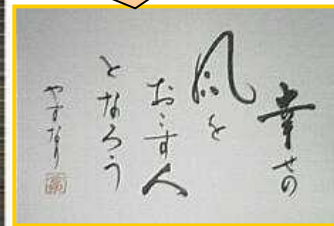 幸せの
風を
おこす人
となろう
やすなり